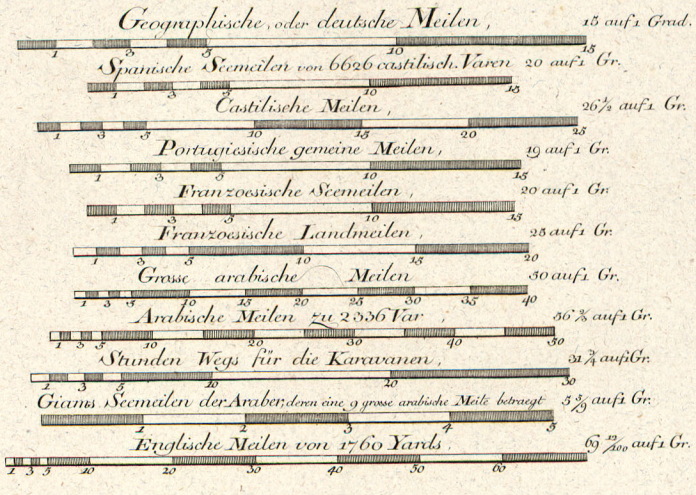 Geographische, oder deutsche Meilen, 15 auf 1 Grad.
1 3 5 10 15
Spanische Seemeilen von 6626 castilisch. Varen 20 auf 1 Gr.
1 3 5 10 15
Castilische Meilen, 26 1/2 auf 1 Gr.
1 3 5 10 15 20 25
Portugiesische gemeine Meilen, 19 auf 1 Gr.
1 3 5 10 15
Franzoesische Seemeilen, 20 auf 1 Gr.
1 3 5 10 15
Franzoesische Landmeilen, 25 auf 1 Gr.
1 3 5 10 15 20
Grosse arabische Meilen 50 auf 1 Gr.
1 3 5 10 15 20 25 30 35 40
Arabische Meilen zu 2336 Var, 56 2/3 auf 1 Gr.
1 3 5 10 20 30 40 50
Stunden Wegs für die Karavanen, 31 3/4 auf 1 Gr.
1 3 5 10 20 30
Giams Seemeilen der Araber, deren eine 9 grosse arabische Meile betraegt 5 5/9 auf 1 Gr.
1 2 3 4 5
Englische Meilen von 1760 Yards, 69 12/100 auf 1 Gr.
1 3 5 10 20 30 40 50 60